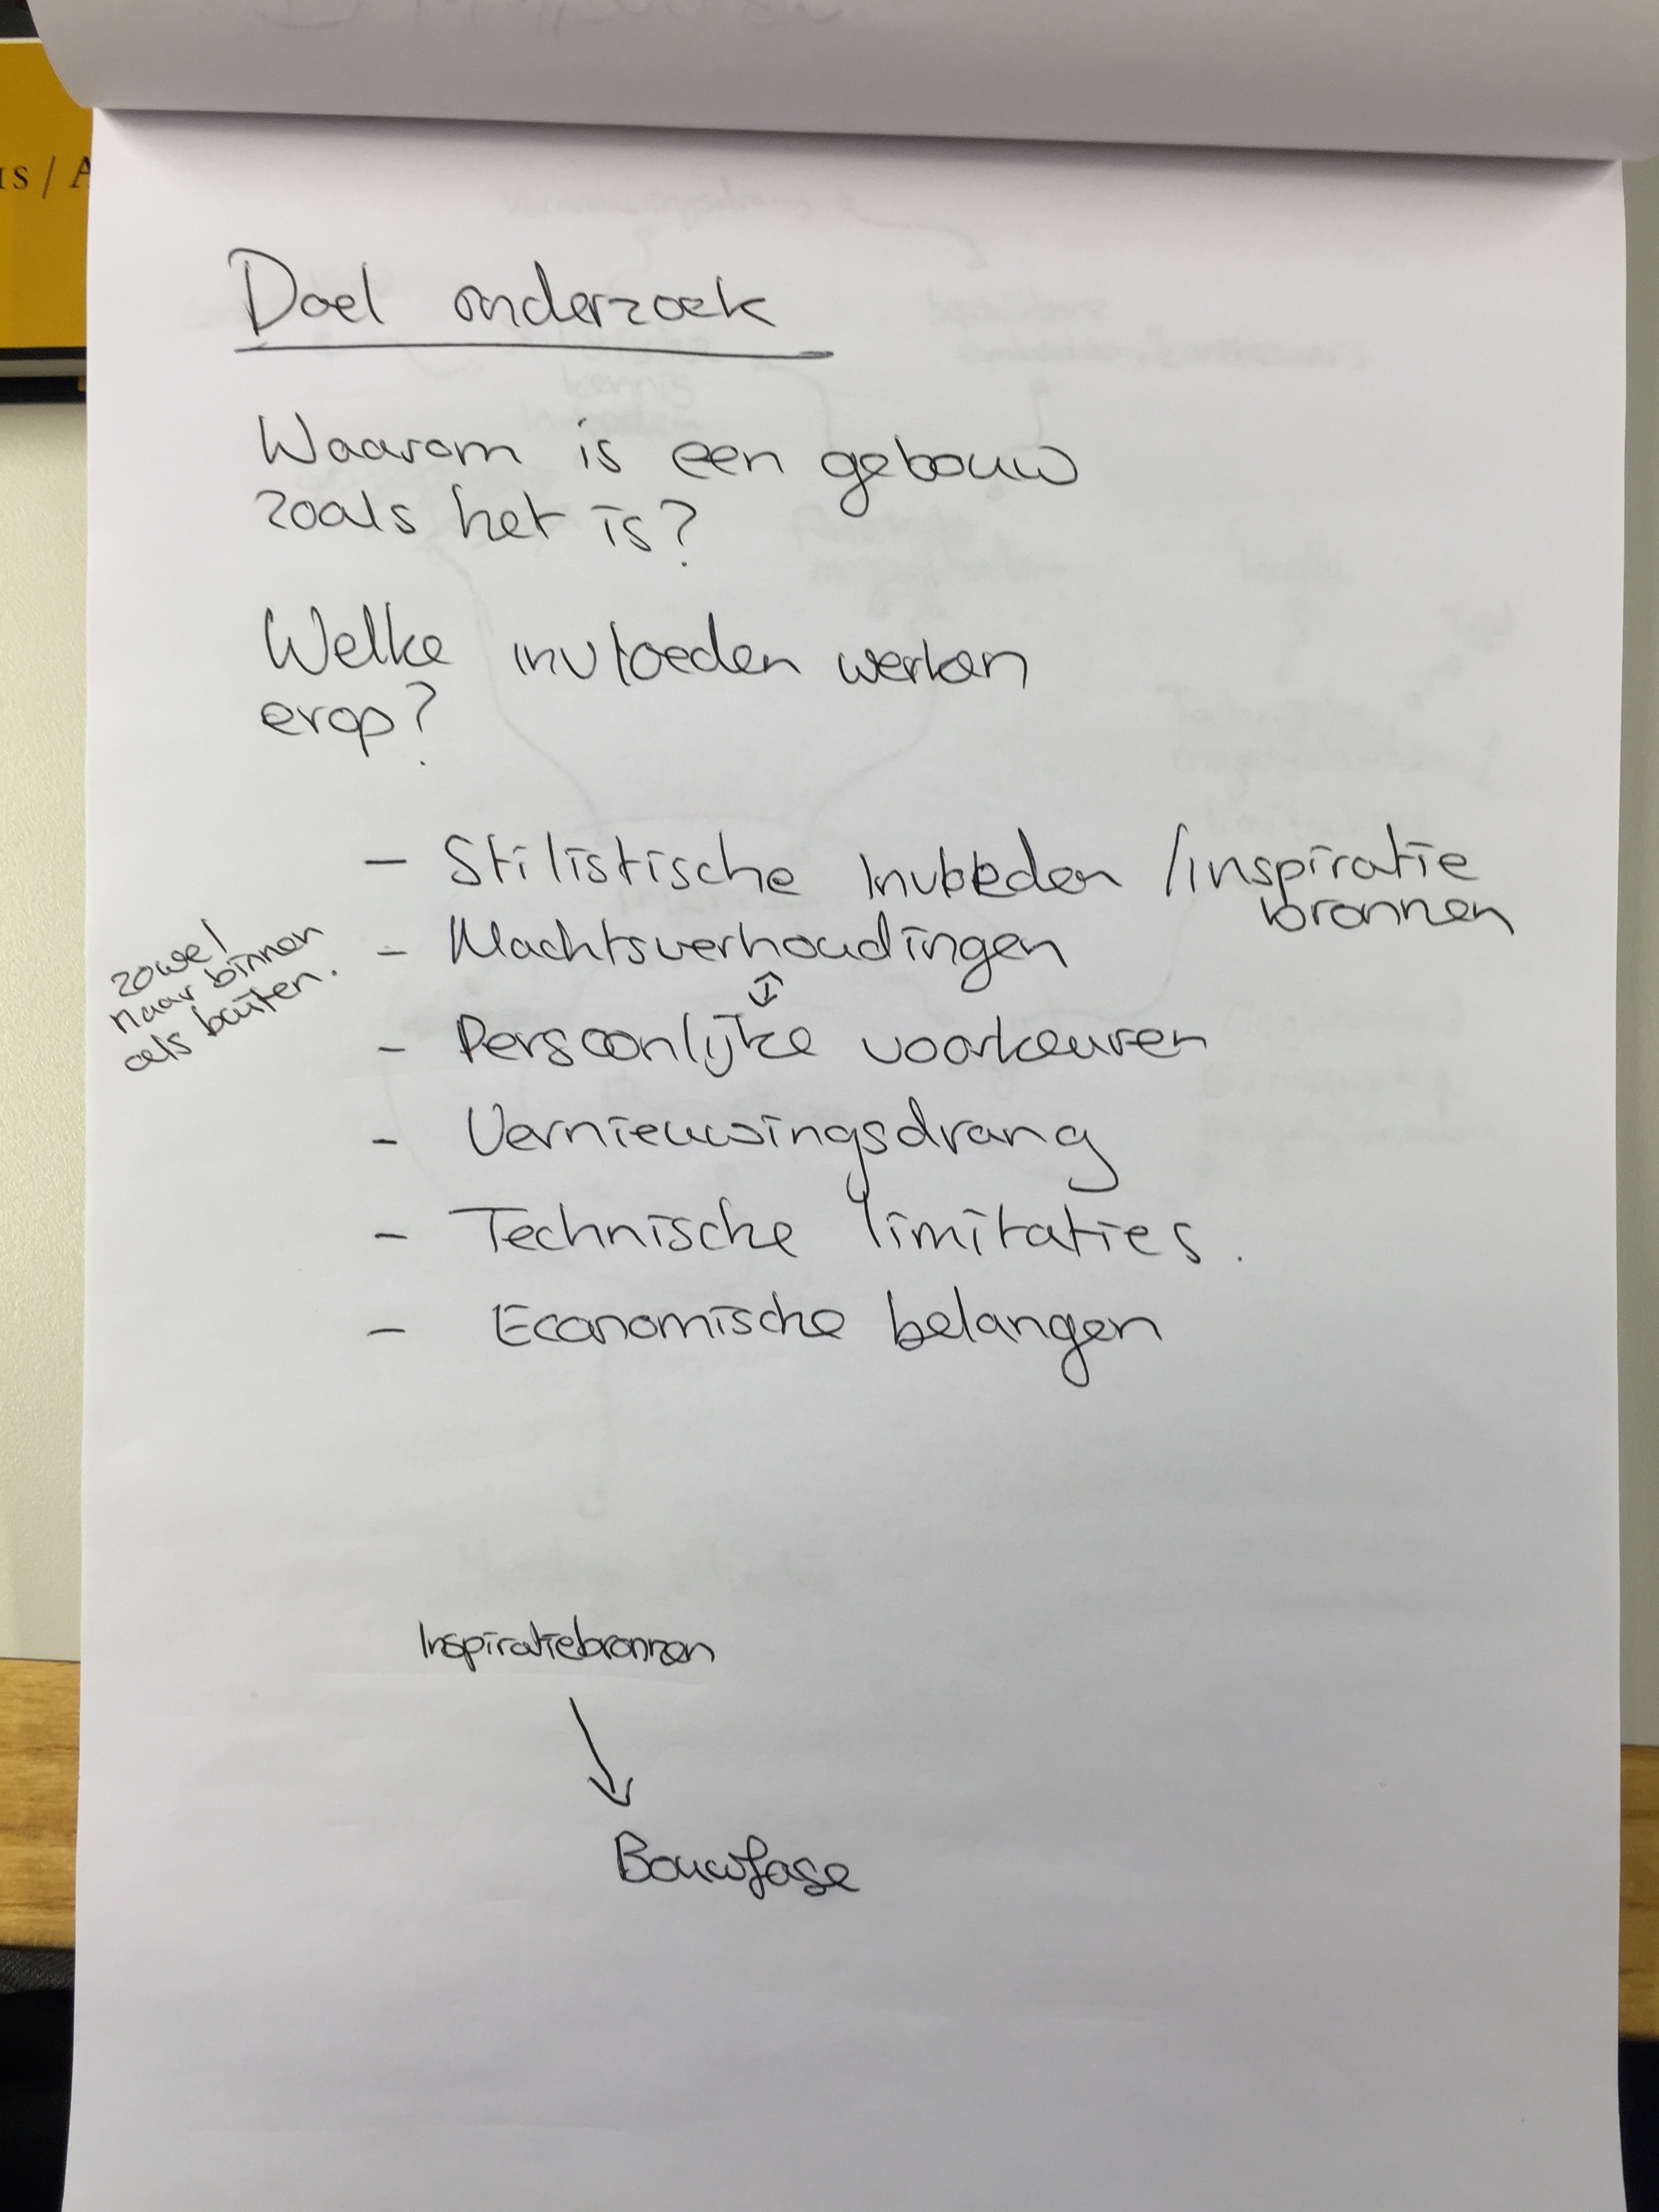 IS / A
Doel onderzoek
Waarom is een gebouw
zoals het is?
Welke invloeden werken
erop?
- Stilistische invloeden /inspiratie
bronnen
- Machtsverhoudingen
zowel
naar binnen
als buiten.
- Persoonlijke voorkeuren
- Vernieuwingsdrang
- Technische limitaties.
- Economische belangen
Inspiratiebronnen
Bouwfase